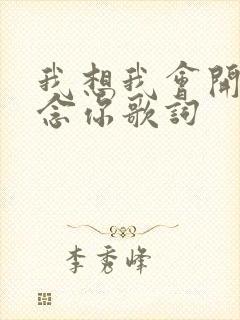 我想我會開
念你歌詞
李秀峰